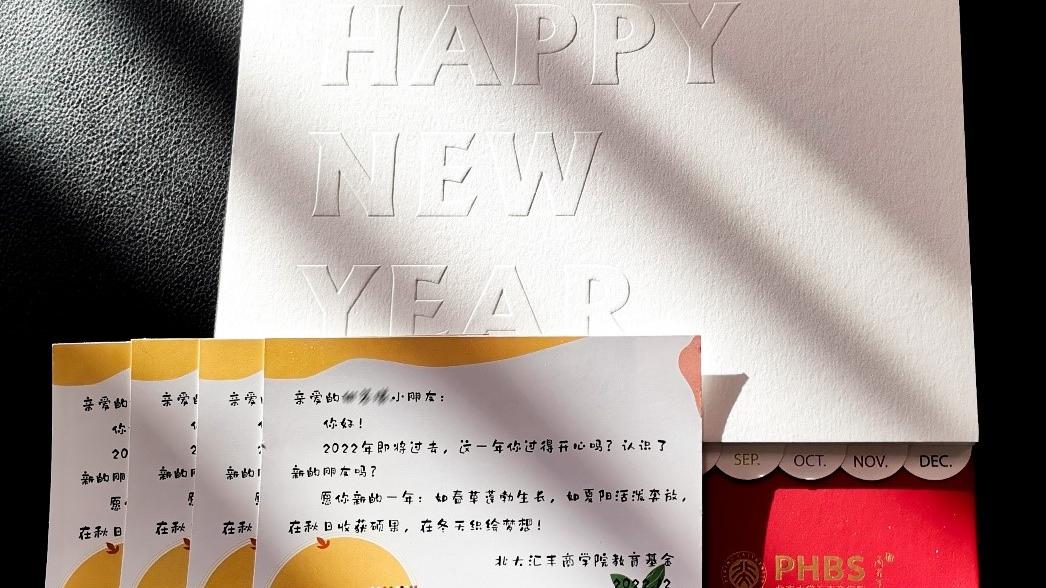 HAPPY
NEW
YEAR
亲爱的
你
20
新的朋
愿
在秋
亲爱的
2
新的朋
愿
在秋
亲爱的
2
新的朋
愿
在秋日
亲爱的小朋友：
你好！
2022年即将过去，这一年你过得开心吗？认识了
新的朋友吗？
愿你新的一年：如春草蓬勃生长，如夏阳活泼奔放，
在秋日收获硕果，在冬天织绘梦想！
北大汇丰商学院教育基金
SEP. OCT. NOV. DEC.
PHBS